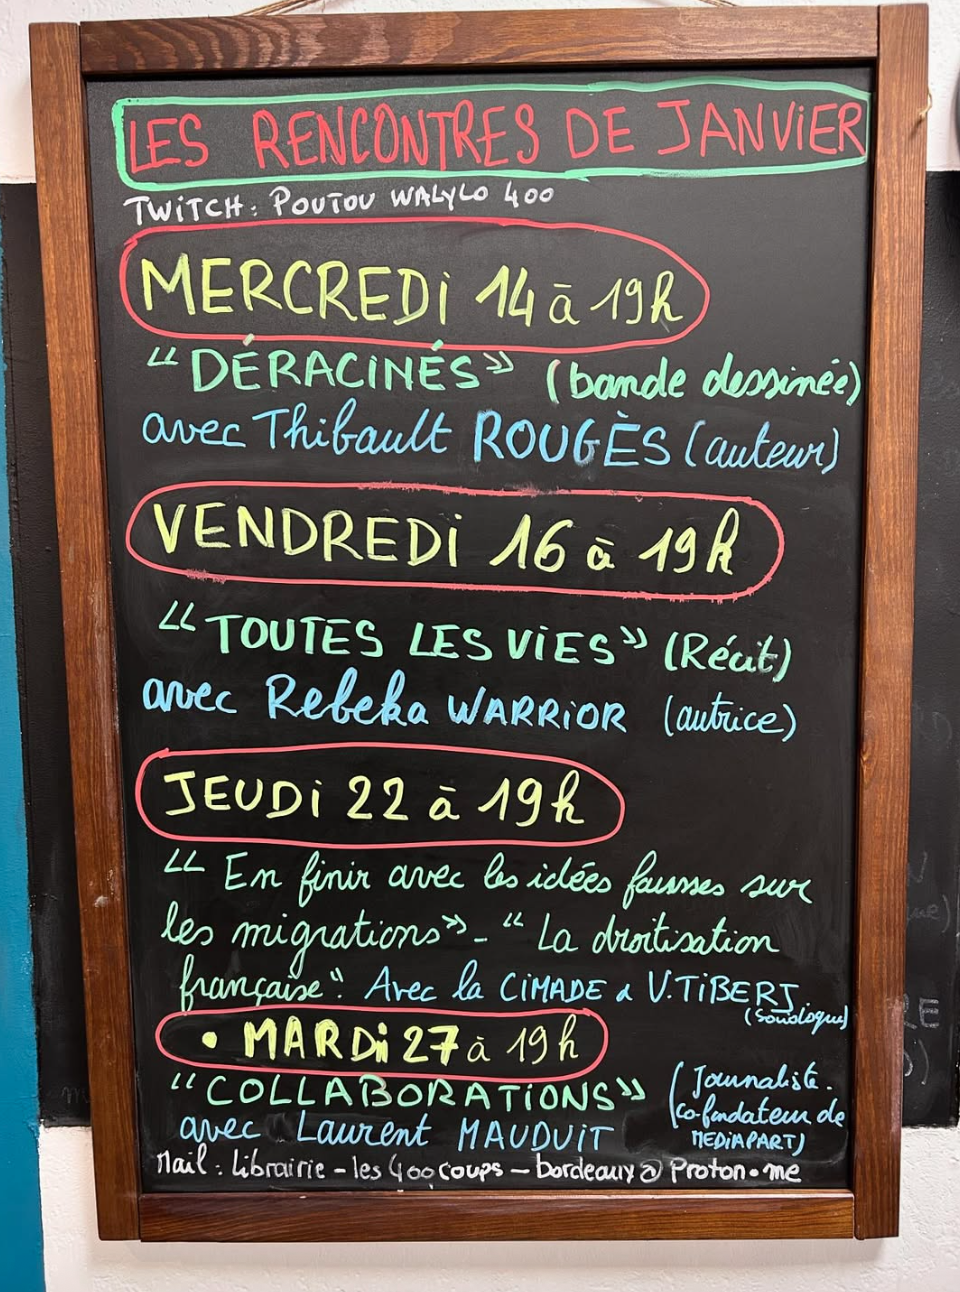 LES RENCONTRES DE JANVIER
TWITCH: POUTOU WALYLO 400
MERCREDI 14 à 19h
"DÉRACINÉS" (bande dessinée)
avec Thibault ROUGÈS (auteur)
VENDREDI 16 à 19h
"TOUTES LES VIES" (Récit)
avec Rebeka WARRIOR (autrice)
JEUDI 22 à 19h
"En finir avec les idées fausses sur
les migrations" - "La droitisation
française". Avec la CIMADE & V. TIBERJ
(Sociologue)
• MARDI 27 à 19h
"COLLABORATIONS"
avec Laurent MAUDUIT
(Journaliste.
co-fondateur de
MEDIAPART)
Mail: Librairie-les400coups-bordeaux@proton.me